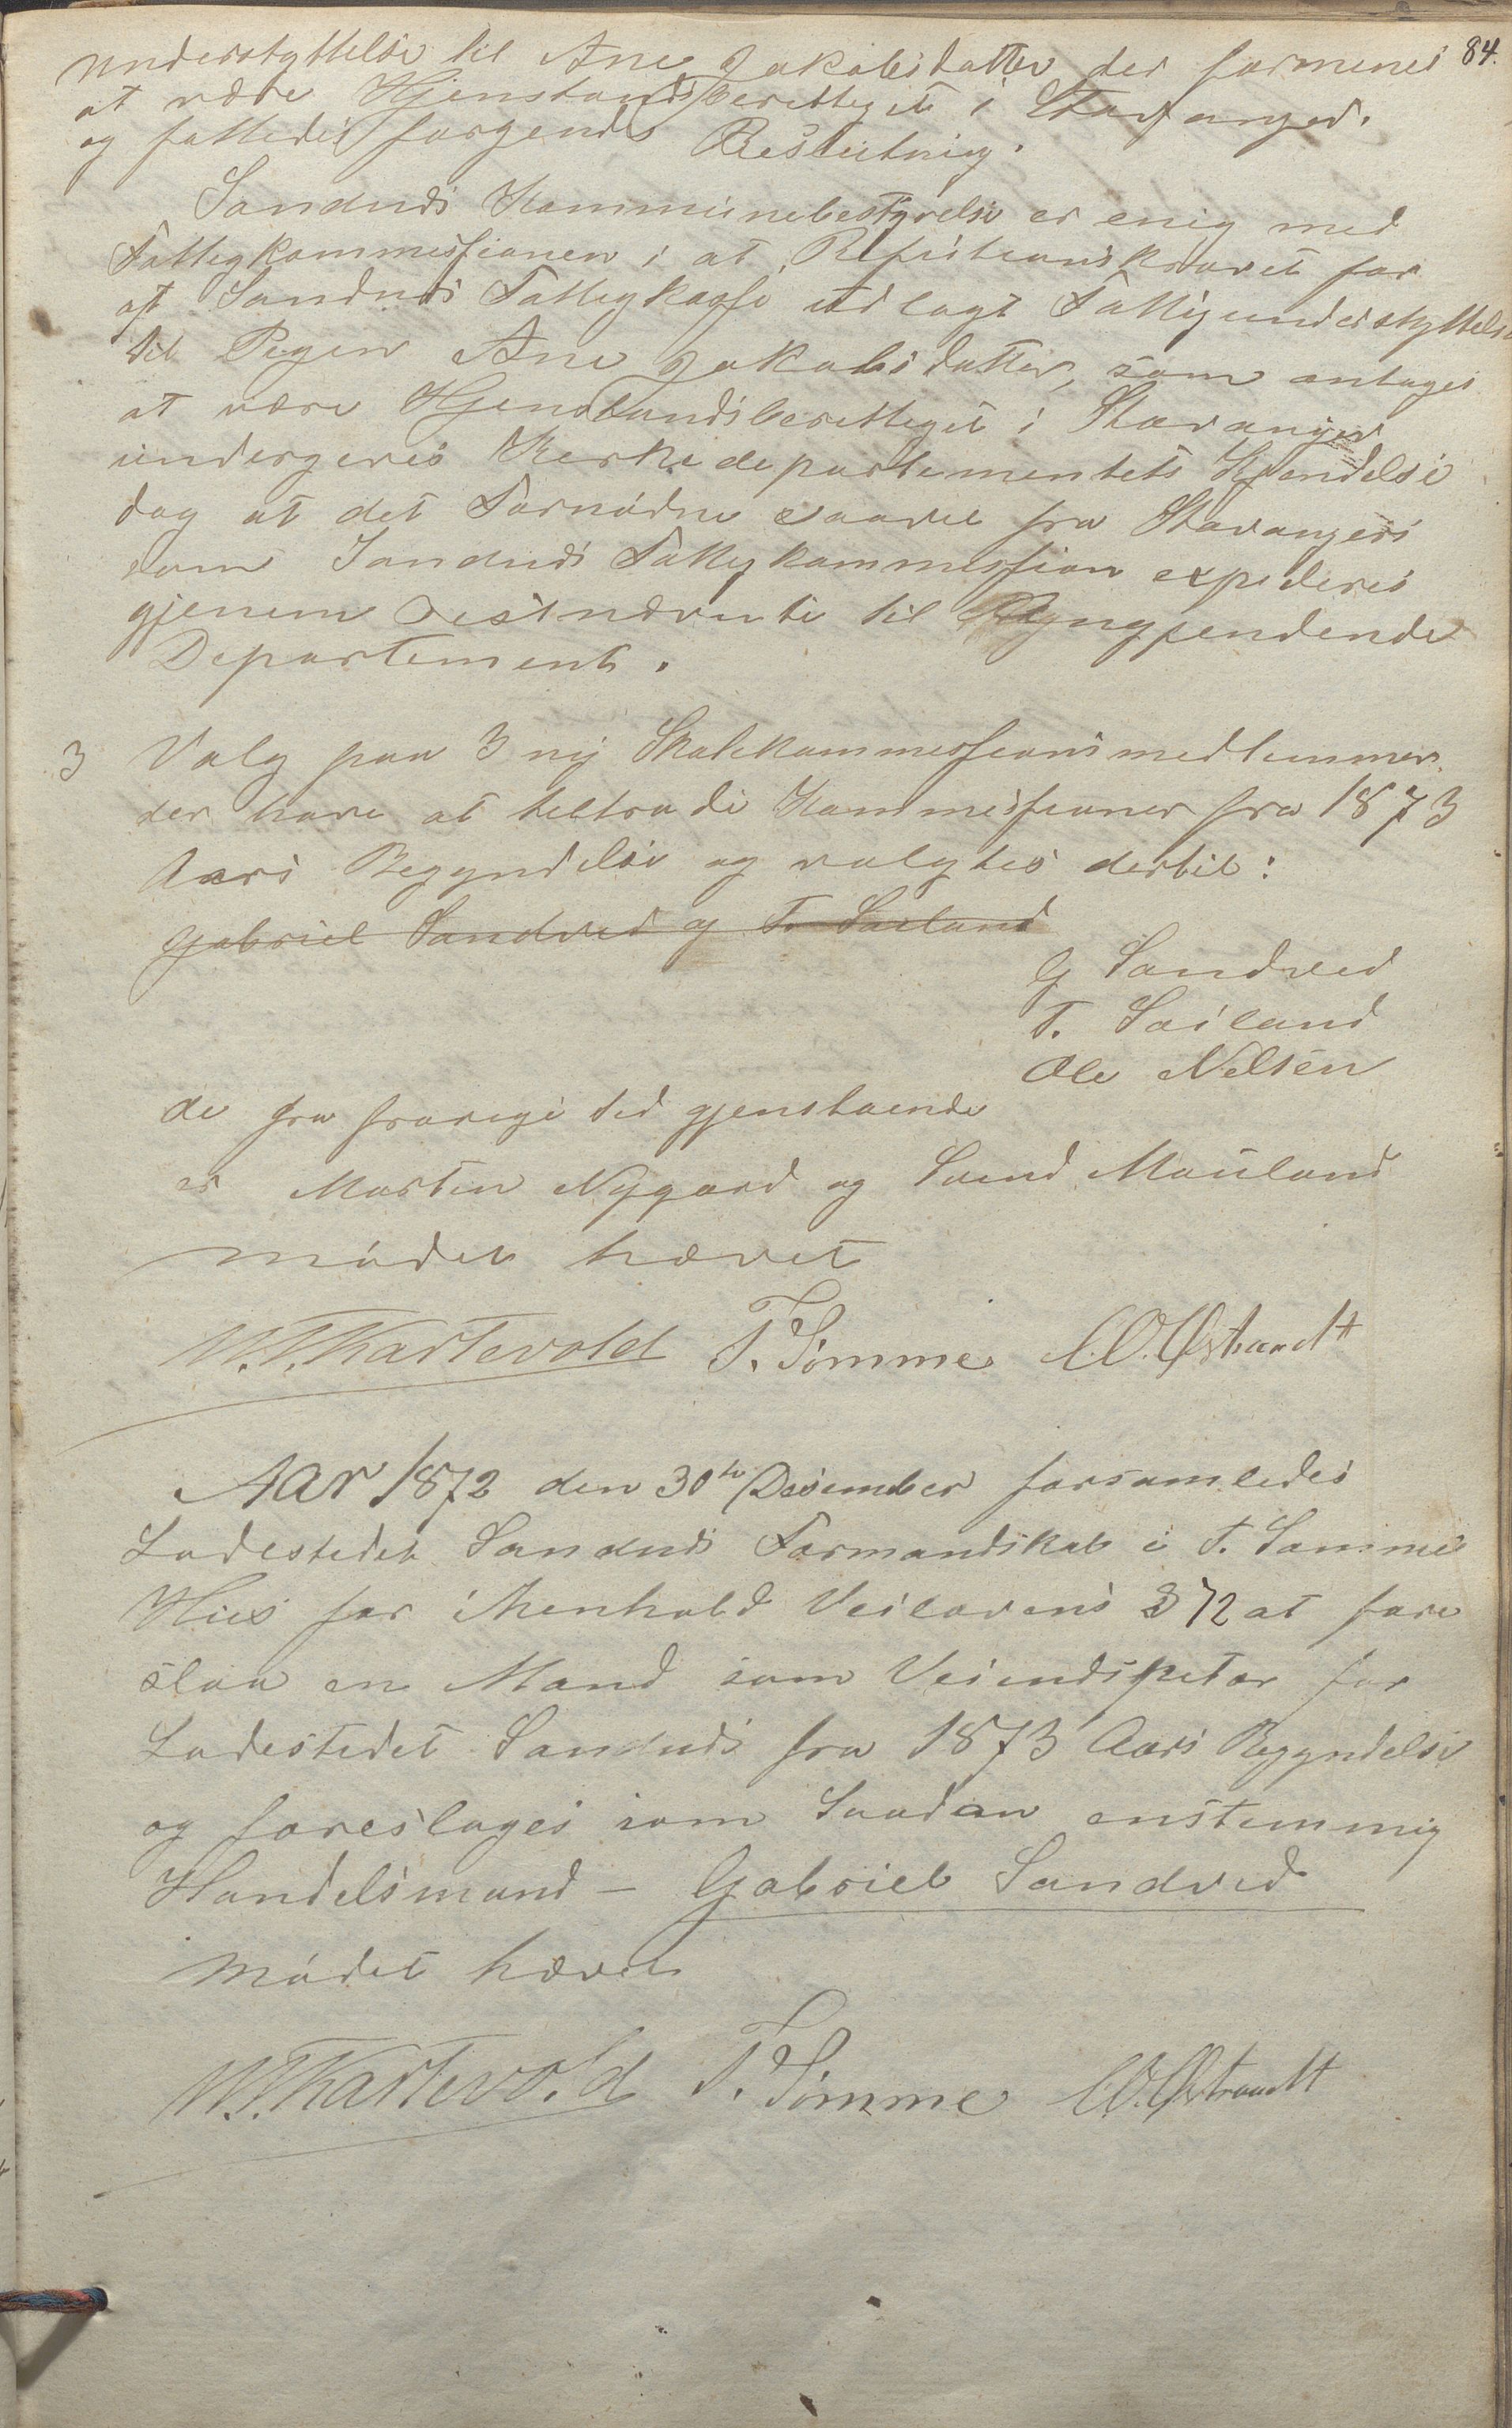 84.
understyttelse til Ane Jakobsdatter der formenes
at være Hjemstandsberettiget i Stavanger.
og fattedes følgende Beslutning.
Sandnæs Kommunebestyrelse er enig med
Fattigkommissionen i at Refusionskravet for
af Sandnæs Fattigkasse udlagt Fattigunderstyttelse
til Pigen Ane Jakobsdatter, som antages
at være Hjemstandsberettiget i Stavanger
undergives Kirkedepartementets Kjendelse
dog at det Fornødne saavel fra Stavangers
som Sandnæs Fattigkommission expederes
gjenem Øistnævnte til
Departement.
3 Valg paa 3 ny Skolekommissionsmedlemmer
der have at tiltræde Kommissionen fra 1873
Aars Begyndelse og valgtes dertil:
Gabriel Sandved og T. Sæland
G Sandved
T. Sæiland
Ole Nelsen
de fra forrige tid gjenstaaende
er Morten Nygaard og Svend Mauland
mødet hævet
W.T. Kartevold T. Somme C.O. Østrandt
Aar 1872 den 30te Desember forsamledes
Ladestedet Sandnæs Formandskab i T. Somme
Huus for i henhold Veilovens § 72 at fore
slaa en Mand som Veiindspetør for
Ladestedet Sandnæs fra 1873 Aars Begyndelse
og foreslages som Saadan enstemmig
Handelsmand - Gabriel Sandved
mødet hævet
W.T. Kartevold T. Somme C.O. Østrandt